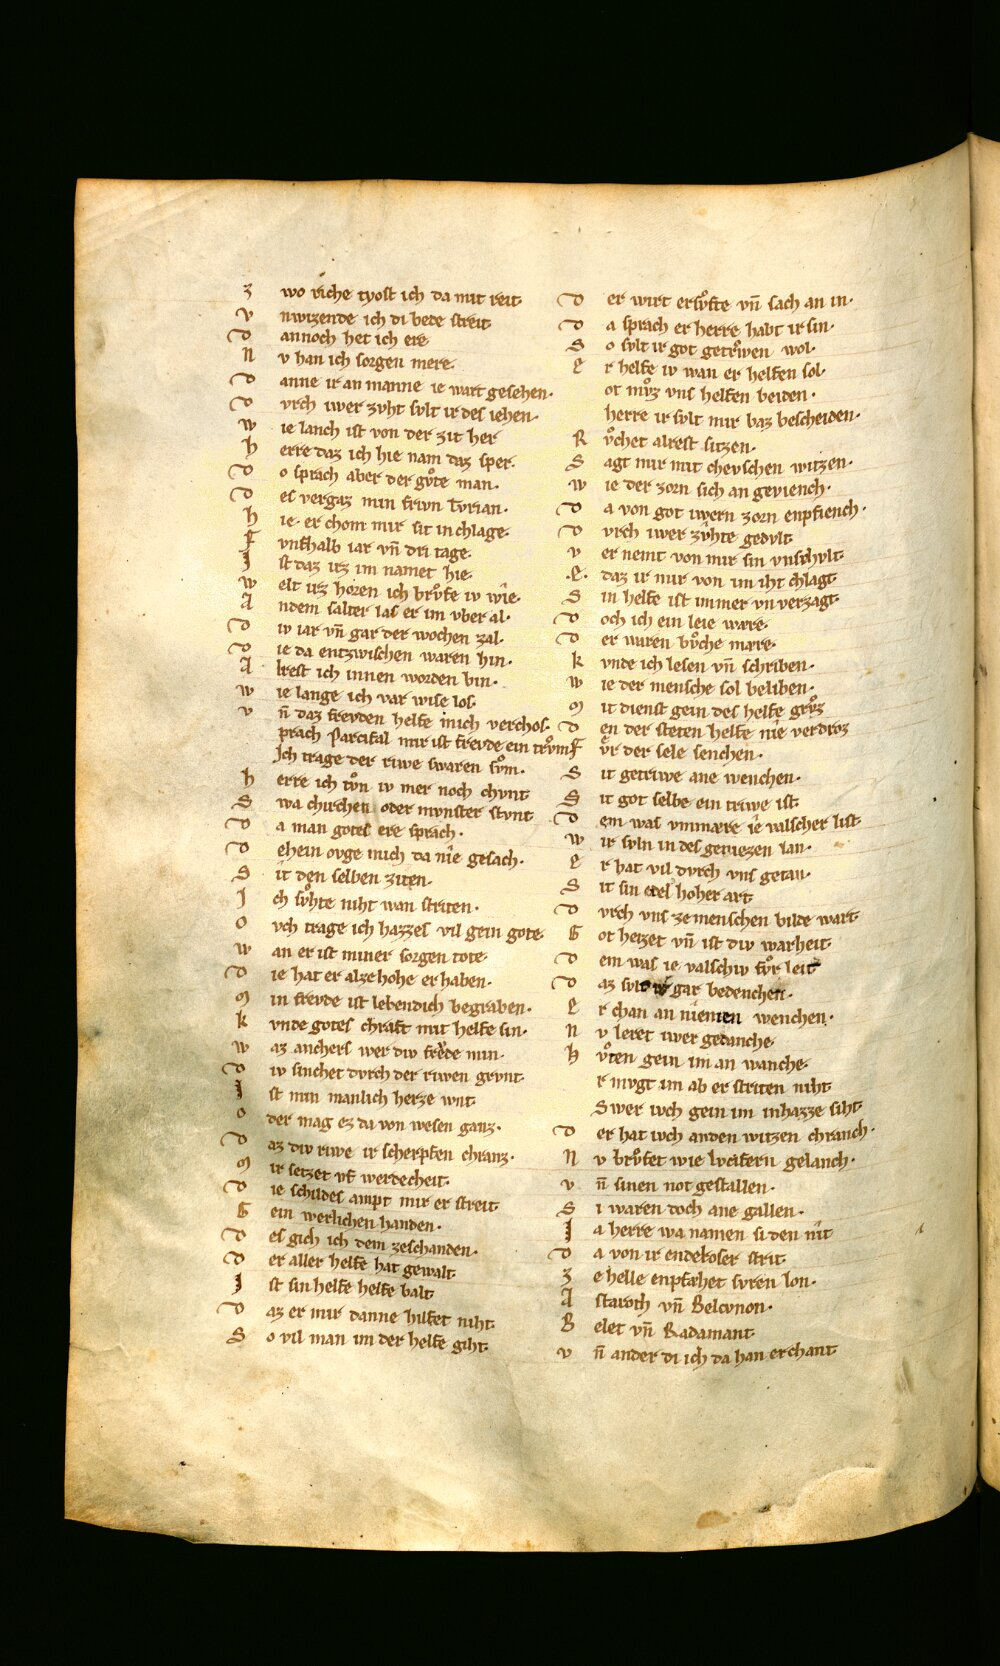 Z wo riche tyost ich da mit reit·
v nwizende ich di bede streit·
D annoch het ich ere
N v han ich sorgen mere·
D anne ir an manne ie wart gesehen·
D vrch iwer zvht svlt ir des iehen·
W ie lanch ist von der zit her
H erre daz ich hie nam daz sper·
D o sprach aber der gvͦte man·
D es vergaz min frivn Tvrian·
H ie· er chom mir sit in chlage·
F vnfhalb iar vn̄ dri tage·
I st daz irz im namet hie·
W elt irz hoͤren ich brvͤfe iv wie·
A ndem salter las er im vber al·
D iv iar vn̄ gar der wochen zal·
D ie da entzwischen waren hin·
A lrest ich innen worden bin·
W ie lange ich var wise los·
V n̄ daz frevden helfe mich verchos·
prach Parcifal mir ist frevde ein trovͦm
Ich trage der riwe swaren sovͦm·
H erre ich tvͦn iv mer noch chvnt
S wa chirchen oder mvnster stvnt
D a man gotes ere sprach·
D ehein ovge mich da nie gesach·
S it den selben ziten·
I ch svͦhte niht wan striten·
O vch trage ich hazzes vil gein gote·
W an er ist miner sorgen tote·
D ie hat er alze hohe erhaben·
M in frevde ist lebendich begraben·
K vnde gotes chraft mit helfe sin·
W az anchers wer div frevde min·
D iv sinchet dvrch der riwen grvnt·
I st min manlich herze wnt
O der mag ez da von wesen ganz·
D az div riwe ir scherpfen chranz·
M ir setzet vf werdecheit·
D ie schildes ampt mir er streit
G ein werlichen handen·
D es gich ich dem zeschanden·
D er aller helfe hat gewalt
I st sin helfe helfe balt
D az er mir danne hilfet niht·
S o vil man im der helfe giht·
D er wirt ersvͤfte vn̄ sach an in·
D a sprach er herre habt ir sin·
S o svlt ir got getrivwen wol·
E r helfe iv wan er helfen sol·
ot mvͦz vns helfen beiden·
herre ir svlt mir baz bescheiden·
R vͦchet alrest sitzen·
S agt mir mit chevschen witzen·
W ie der zorn sich an geviench·
D a von got iwern zorn enpfiench·
D vrch iwer zvhte gedvlt
V er nemt von mir sin vnschvlt·
·E· daz ir mir von im iht chlagt·
S in helfe ist immer vn verzagt·
D och ich ein leie wære·
D er waren bvͦche mære·
K vnde ich lesen vn̄ schriben·
W ie der mensche sol beliben·
M it dienst gein des helfe grvͦz
D en der steten helfe nie verdroz
F vr der sele senchen·
S it getriwe ane wenchen·
S it got selbe ein triwe ist
D em was vnmære ie valscher list
W ir svln in des geniezen lan·
E r hat vil dvrch vns getan·
S it sin edel hoher art
D vrch vns ze menschen bilde wart·
G ot heizet vn̄ ist div warheit·
D em was ie valschiv fvͦr leit
D az svlt ir gar bedenchen·
E r chan an niemen wenchen·
N v leret iwer gedanche·
H vͤten gein im an wanche·
r mvgt im ab er striten niht
Swer ivch gein im inhazze siht
D er hat ivch anden witzen chranch·
N v brvͤfet wie lvcifern gelanch·
V n̄ sinen notgestallen·
S i waren doch ane gallen·
I a herre wa namen si den nit
D a von ir endeloser strit
Z e helle enpfæhet svren lon·
A staroth vn̄ Belcvnon·
B elet vn̄ Radamant·
V n̄ ander di ich da han erchant